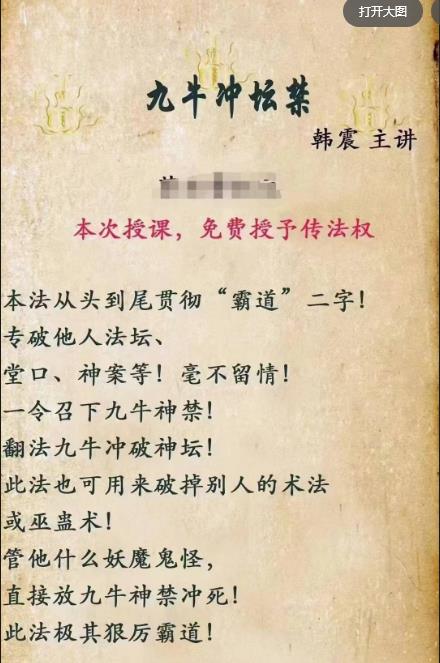 打开大图
九牛冲坛禁
韩震 主讲
本次授课，免费授予传法权
本法从头到尾贯彻“霸道”二字！
专破他人法坛、
堂口、神案等！毫不留情！
一令召下九牛神禁！
翻法九牛冲破神坛！
此法也可用来破掉别人的术法
或巫蛊术！
管他什么妖魔鬼怪，
直接放九牛神禁冲死！
此法极其狠厉霸道！